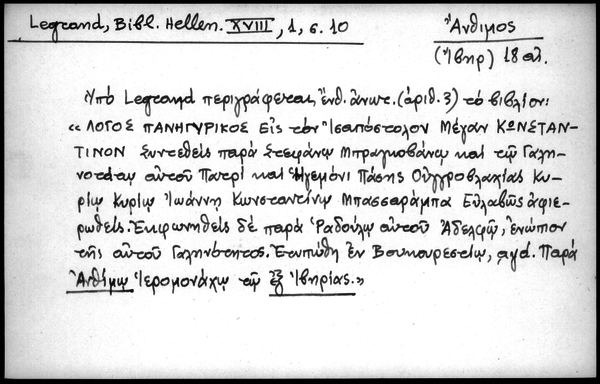 Legrand, Bibl. Hellen. XVIII, 1, σ. 10
Ἄνθιμος
(Ἴβηρ) 18 αἰ.
Ὑπὸ Legrand περιγράφεται, ἔνθ. ἀνωτ. (ἀριθ. 3) τὸ βιβλίον:
« ΛΟΓΟΣ ΠΑΝΗΓΥΡΙΚΟΣ Εἰς τὸν Ἰσαπόστολον Μέγαν ΚΩΝΣΤΑΝ-
ΤΙΝΟΝ Συντεθεὶς παρὰ Στεφάνῳ Μπραγκοβάνῳ καὶ τῷ Γαλη-
νοτάτῳ αὐτοῦ Πατρὶ καὶ Ἡγεμόνι Πάσης Οὐγγροβλαχίας Κυ-
ρίῳ Κυρίῳ Ἰωάννῃ Κωνσταντίνῳ Μπασσαράμπᾳ Εὐλαβῶς ἀφιε-
ρωθείς. Ἐκφωνηθεὶς δὲ παρὰ Ῥαδούλῳ αὐτοῦ Ἀδελφῷ, ἐνώπιον
τῆς αὐτοῦ Γαληνότητος. Ἐτυπώθη ἐν Βουκουρεστίῳ, ͵αψά. Παρὰ
Ἀνθίμῳ Ἱερομονάχῳ τῷ ἐξ Ἰβηρίας.»